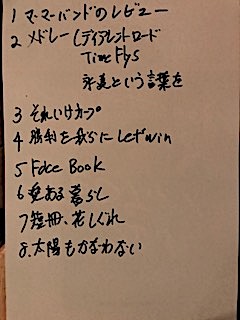 1 マーマーバンドのレビュー
2 メドレー(ディアレントロード
Time Flys
永美という言葉を
3 それいけカープ
4 勝利を我らに Let's win
5 Face Book
6 愛ある暮らし
7 短冊、花しぐれ
8.太陽もかなわない